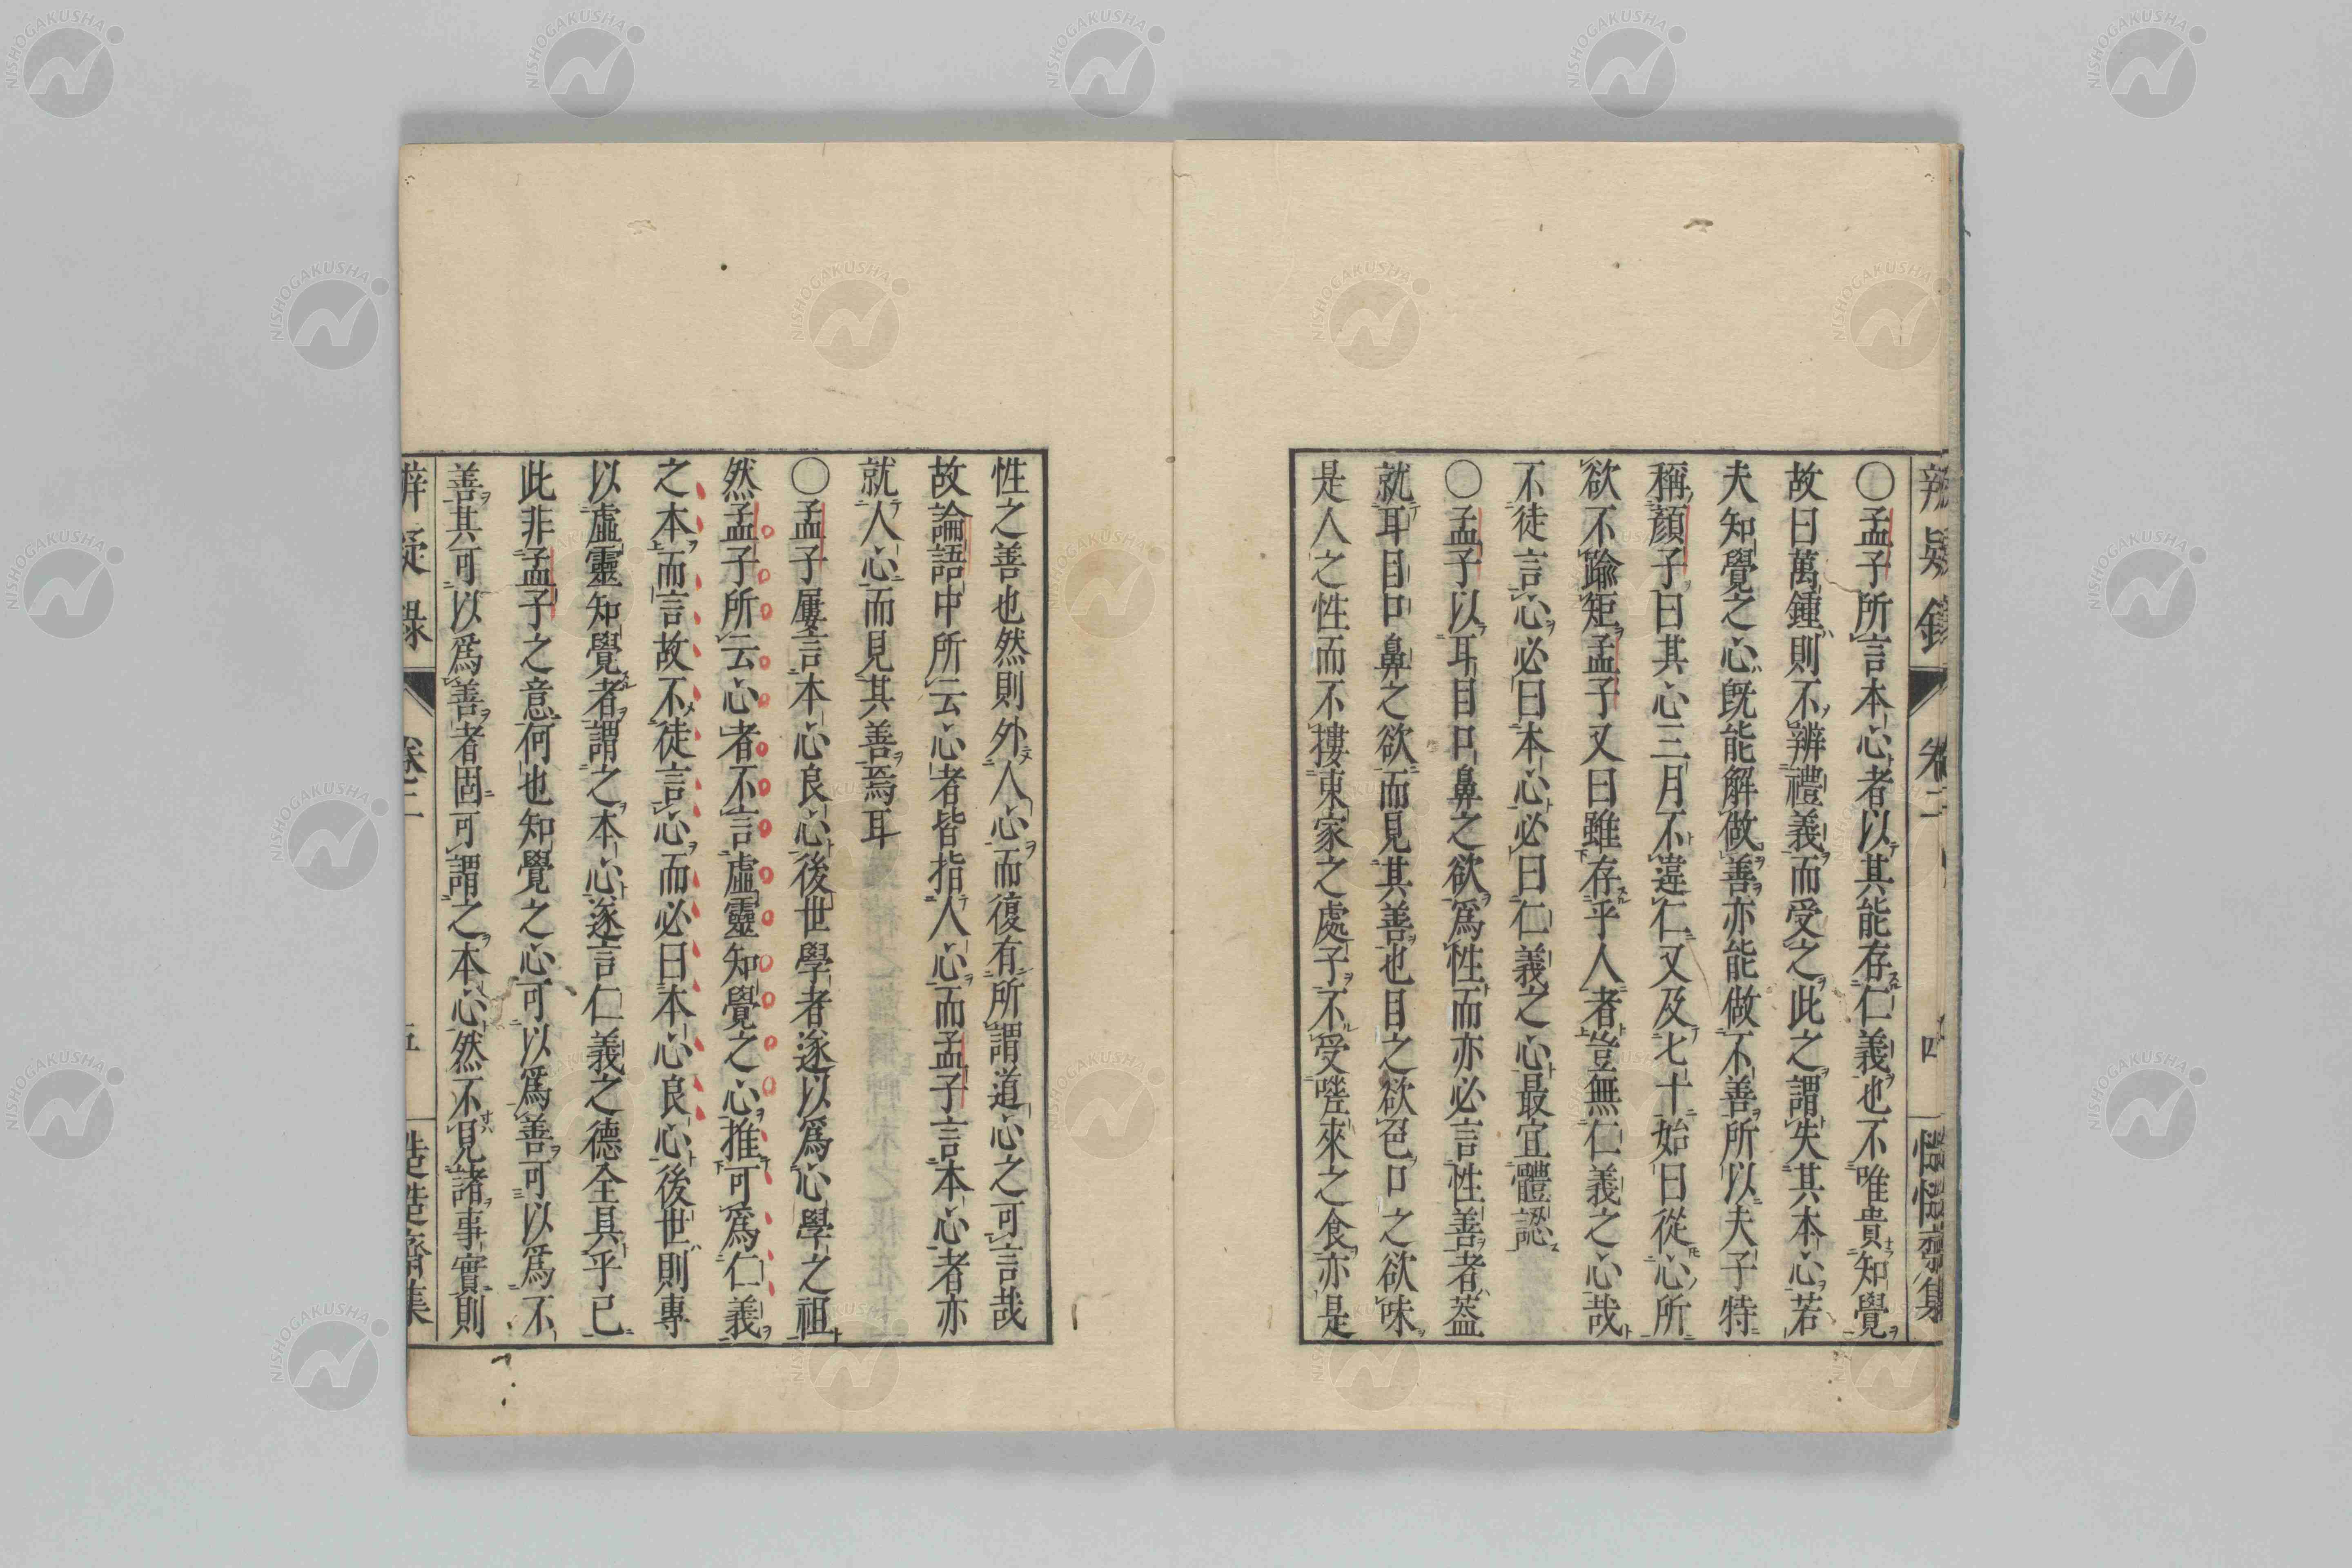 〇孟子所言本心者以其能存仁義也不唯貴知覺
故曰萬鍾則不辨禮義而受之此之謂失其本心若
夫知覺之心既能解做善亦能做不善所以夫子特
稱顏子曰其心三月不違仁又及七十始曰從心所
欲不踰矩孟子又曰雖存乎人者豈無仁義之心哉
不徒言心必曰本心必曰仁義之心最宜體認
〇孟子以耳目口鼻之欲爲性而亦必言性善者蓋
就耳目口鼻之欲而見其善也目之欲色口之欲味
是人之性而不摟東家之處子不受嗟來之食亦是
性之善也然則外人心而復有所謂道心之可言哉
故論語中所云心者皆指人心而孟子言本心者亦
就人心而見其善焉耳
〇孟子屢言本心良心後世學者遂以爲心學之祖
然孟子所云心者不言虛靈知覺之心推可爲仁義
之本而言故不徒言心而必曰本心良心後世則專
以虛靈知覺者謂之本心遂言仁義之德全具乎已
此非孟子之意何也知覺之心可以爲善可以爲不
善其可以爲善者固可謂之本心然不見諸事實則
辨疑錄 卷二 四
NISHOGAKUSHA